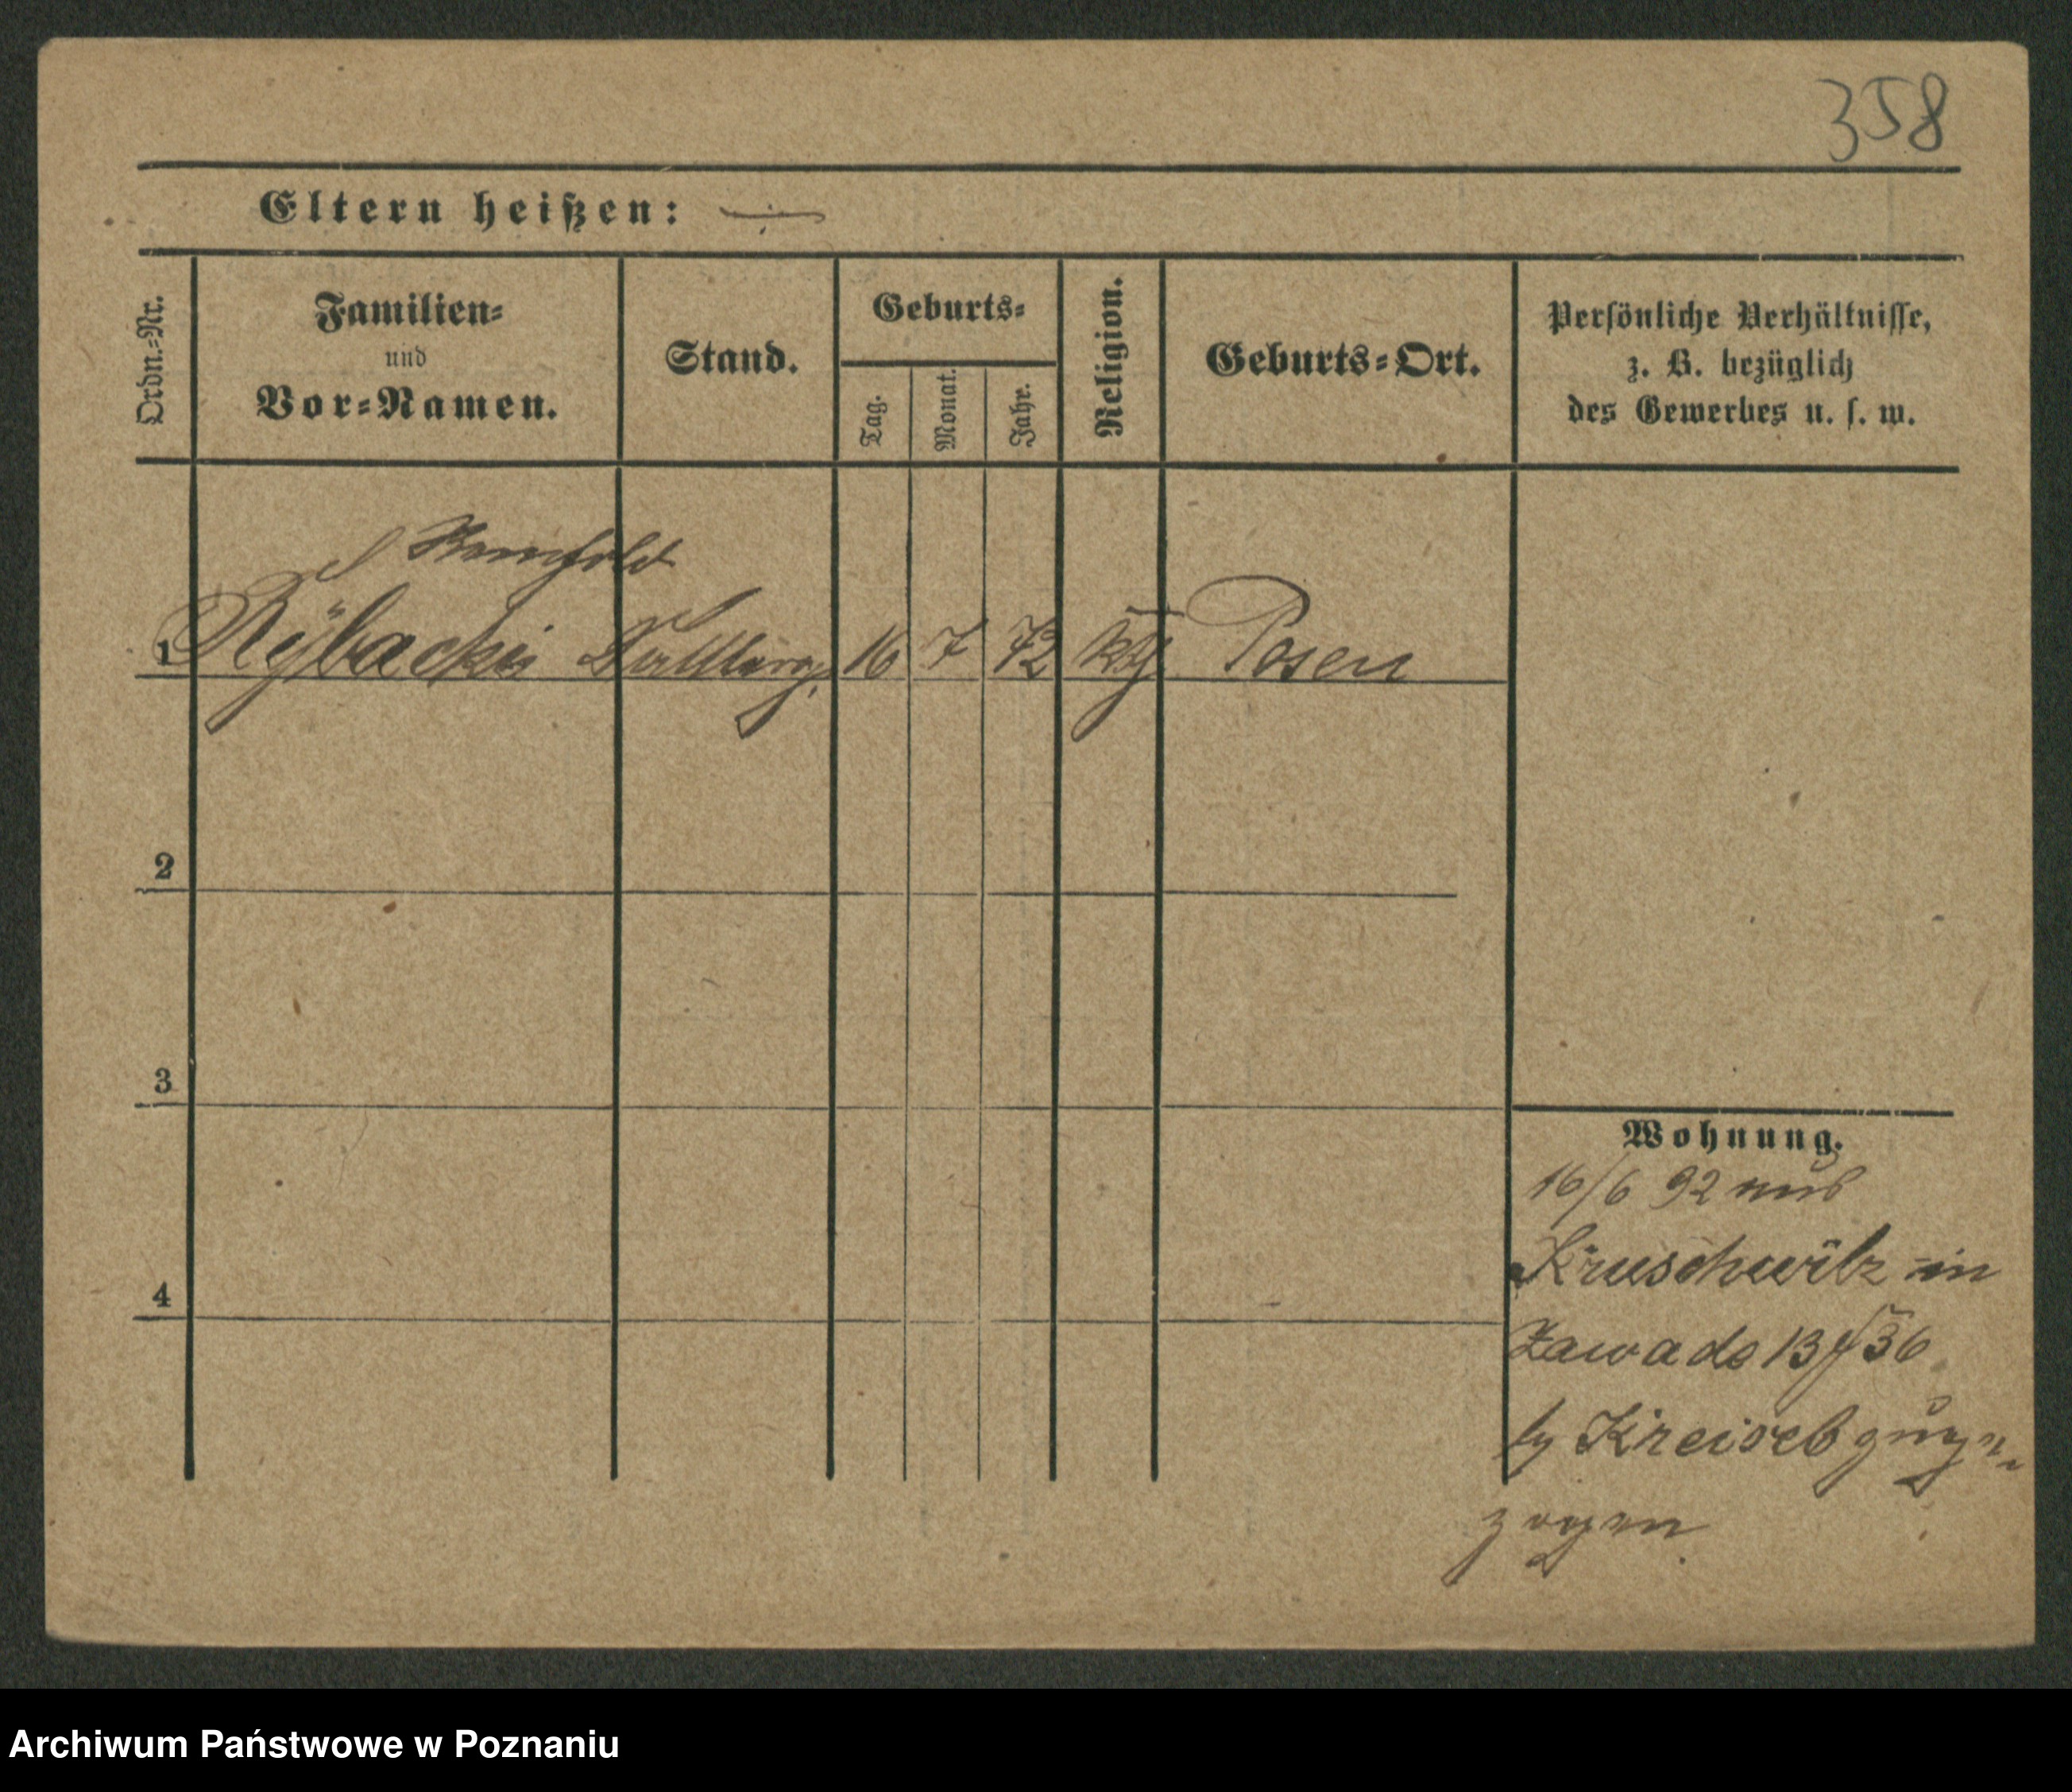 358
Eltern heißen: —
Ordn.-Nr.
Familien-
und
Vor-Namen.
Stand.
Geburts-
Tag.
Monat.
Jahr.
Religion.
Geburts-Ort.
Persönliche Verhältnisse,
z. B. bezüglich
des Gewerbes u. s. w.
1 Rÿbacki 16 7 72 kth Posen
2
3
4
Wohnung.
16/6 92 aus
Kruschwitz in
Zawade 13 36
by Kreiseb zuge-
zogen
Archiwum Państwowe w Poznaniu